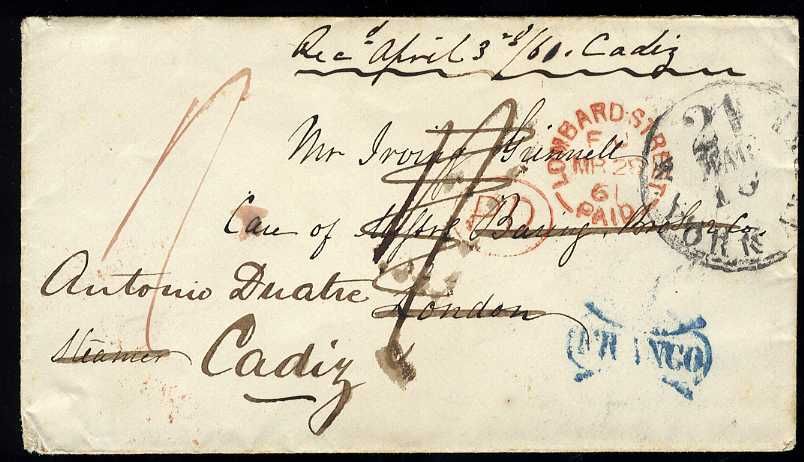 Recd April 3rd/61. Cadiz
LOMBARD STREET
F
MR 28
61
PAID
21
MAR
YORK
Mr Irving Grinnell
PD
Care of Messrs Baring, Bros & Co.
Antonio Duatre London
Steamer Cadiz
FRANCO